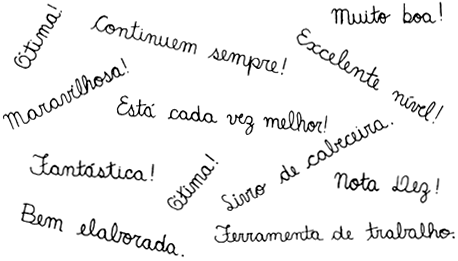 Ótima!
Continuem sempre!
Muito boa!
Excelente nível!
Maravilhosa!
Está cada vez melhor!
Fantástica!
Ótima!
Livro de cabeceira.
Nota Dez!
Bem elaborada.
Ferramenta de trabalho.